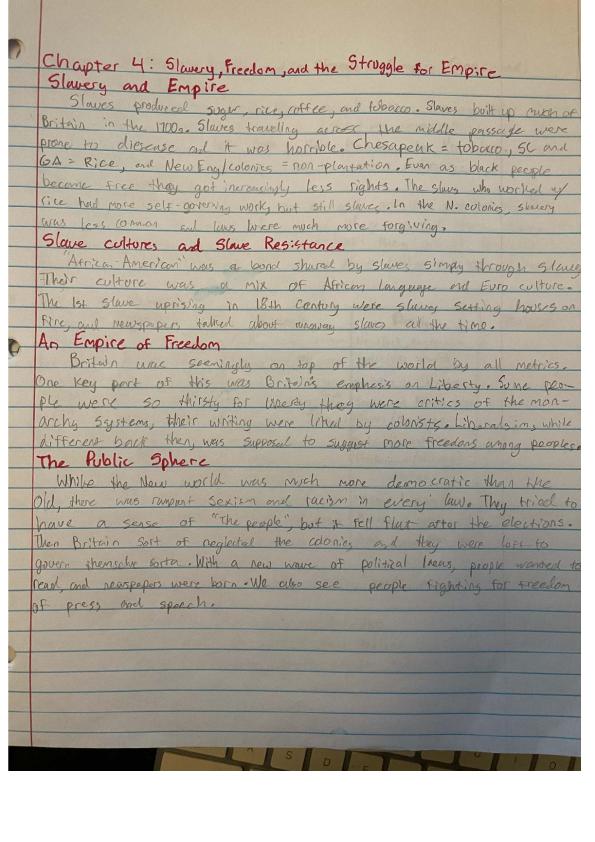 Chapter 4: Slavery, Freedom, and the Struggle for Empire
Slavery and Empire
Slaves produced sugar, rice, coffee, and tobacco. Slaves built up much of
Britain in the 1700s. Slaves traveling across the middle passage were
prone to diesease and it was horrible. Chesapeak = tobacco, SC and
GA = Rice, and New Eng/colonies = non-plantation. Even as black people
become free they got increasingly less rights. The slaves who worked w/
rice had more self-governing work, but still slaves. In the N. colonies, slavery
was less common and laws were much more forgiving.
Slave cultures and Slave Resistance
"African-American" was a bond shared by slaves simply through slavery
Their culture was a mix of African language and Euro culture.
The 1st slave uprising in 18th century were slaves setting houses on
fire, and newspapers talked about runaway slaves at the time.
An Empire of Freedom
Britain was seemingly on top of the world by all metrics.
One key part of this was Britain's emphasis on Liberty. Some peo-
ple were so thirsty for liberty they were critics of the mon-
archy systems, their writing were liked by colonists. Liberalsim, while
different back then, was supposed to suggest more freedoms among peoples.
The Public Sphere
While the New world was much more democratic than the
Old, there was rampant sexism and racism in every law. They tried to
have a sense of "The people", but it fell flat after the elections.
Then Britain sort of neglected the colonies and they were left to
govern themselve sorta. With a new wave of political ideas, people wanted to
read, and newspapers were born. We also see people fighting for freedom
of press and speech.
S
D